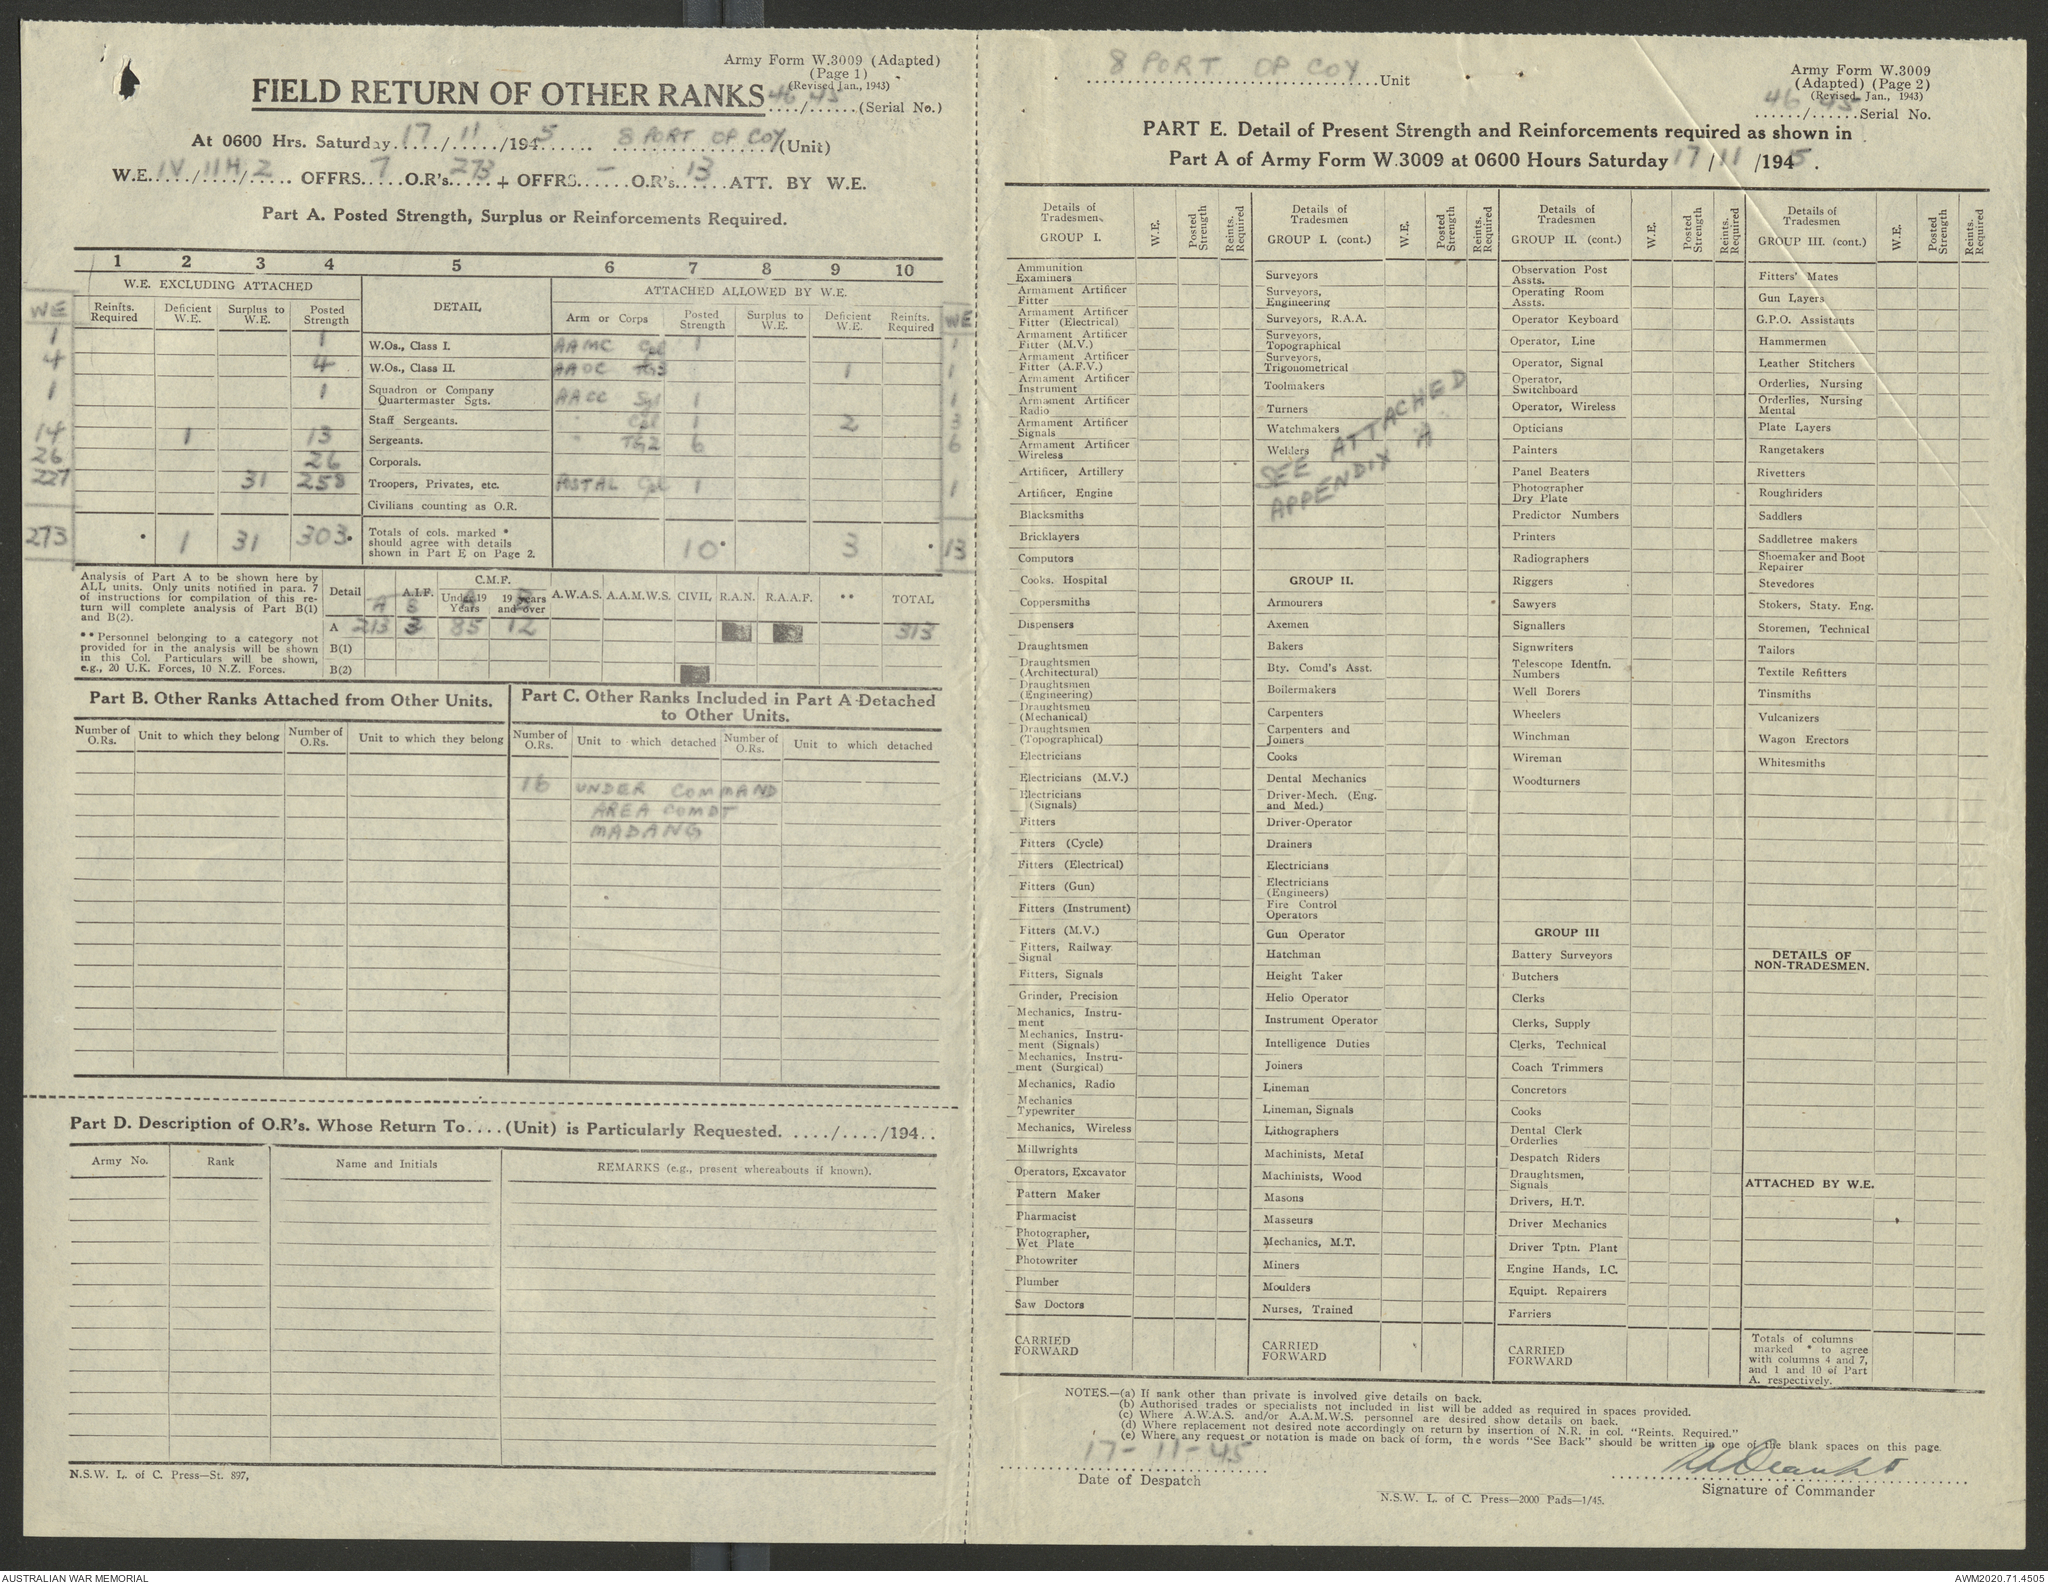 Army Form W.3009 (Adapted)
(Page 1)
(Revised Jan., 1943)
FIELD RETURN OF OTHER RANKS 46/45 (Serial No.)
At 0600 Hrs. Saturday 17/11/1945 8 PORT OP COY (Unit)
W.E. IV/11H/2 OFFRS 7 O.R's. 273 + OFFRS. - O.R's. 13 ATT. BY W.E.
Part A. Posted Strength, Surplus or Reinforcements Required.
1 2 3 4 5 6 7 8 9 10
W.E. EXCLUDING ATTACHED DETAIL ATTACHED ALLOWED BY W.E.
WE Reinfts. Required Deficient W.E. Surplus to W.E. Posted Strength Arm or Corps Posted Strength Surplus to W.E. Deficient W.E. Reinfts. Required WE
1 1 W.Os., Class I. AAMC Cpl 1 1
4 4 W.Os., Class II. AAOC TG3 1 1
1 1 Squadron or Company Quartermaster Sgts. AACC Sgt 1 1
Staff Sergeants. " Cpl 1 2 3
14 1 13 Sergeants. " TG2 6 6
26 26 Corporals.
227 31 258 Troopers, Privates, etc. POSTAL Cpl 1 1
Civilians counting as O.R.
273 * 1 31 303* Totals of cols. marked * should agree with details shown in Part E on Page 2. 10* 3 * 13
Analysis of Part A to be shown here by
ALL units. Only units notified in para. 7
of instructions for compilation of this re-
turn will complete analysis of Part B(1)
and B(2).
** Personnel belonging to a category not
provided for in the analysis will be shown
in this Col. Particulars will be shown,
e.g., 20 U.K. Forces, 10 N.Z. Forces.
C.M.F.
Detail A.I.F. Under 19 Years 19 years and over A.W.A.S. A.A.M.W.S. CIVIL R.A.N. R.A.A.F. ** TOTAL
A 213 3 85 12 313
B(1)
B(2)
Part B. Other Ranks Attached from Other Units.
Number of O.Rs. Unit to which they belong Number of O.Rs. Unit to which they belong
Part C. Other Ranks Included in Part A Detached
to Other Units.
Number of O.Rs. Unit to which detached Number of O.Rs. Unit to which detached
16 UNDER COMMAND
AREA COMDT
MADANG
Part D. Description of O.R's. Whose Return To....(Unit) is Particularly Requested. ..../..../194..
Army No. Rank Name and Initials REMARKS (e.g., present whereabouts if known).
N.S.W. L. of C. Press—St. 897,
8 PORT OP COY Unit
Army Form W.3009
(Adapted) (Page 2)
(Revised Jan., 1943)
46/45 Serial No.
PART E. Detail of Present Strength and Reinforcements required as shown in
Part A of Army Form W.3009 at 0600 Hours Saturday 17/11/1945.
Details of Tradesmen. GROUP I. W.E. Posted Strength Reints. Required
Ammunition Examiners
Armament Artificer Fitter
Armament Artificer Fitter (Electrical)
Armament Artificer Fitter (M.V.)
Armament Artificer Fitter (A.F.V.)
Armament Artificer Instrument
Armament Artificer Radio
Armament Artificer Signals
Armament Artificer Wireless
Artificer, Artillery
Artificer, Engine
Blacksmiths
Bricklayers
Computors
Cooks, Hospital
Coppersmiths
Dispensers
Draughtsmen
Draughtsmen (Architectural)
Draughtsmen (Engineering)
Draughtsmen (Mechanical)
Draughtsmen (Topographical)
Electricians
Electricians (M.V.)
Electricians (Signals)
Fitters
Fitters (Cycle)
Fitters (Electrical)
Fitters (Gun)
Fitters (Instrument)
Fitters (M.V.)
Fitters, Railway Signal
Fitters, Signals
Grinder, Precision
Mechanics, Instru-ment
Mechanics, Instru-ment (Signals)
Mechanics, Instru-ment (Surgical)
Mechanics, Radio
Mechanics Typewriter
Mechanics, Wireless
Millwrights
Operators, Excavator
Pattern Maker
Pharmacist
Photographer, Wet Plate
Photowriter
Plumber
Saw Doctors
CARRIED FORWARD
Details of Tradesmen GROUP I. (cont.) W.E. Posted Strength Reints. Required
Surveyors
Surveyors, Engineering
Surveyors, R.A.A.
Surveyors, Topographical
Surveyors, Trigonometrical
Toolmakers
Turners
Watchmakers
Welders
SEE ATTACHED
APPENDIX A
GROUP II.
Armourers
Axemen
Bakers
Bty. Comd's Asst.
Boilermakers
Carpenters
Carpenters and Joiners
Cooks
Dental Mechanics
Driver-Mech. (Eng. and Med.)
Driver-Operator
Drainers
Electricians
Electricians (Engineers)
Fire Control Operators
Gun Operator
Hatchman
Height Taker
Helio Operator
Instrument Operator
Intelligence Duties
Joiners
Lineman
Lineman, Signals
Lithographers
Machinists, Metal
Machinists, Wood
Masons
Masseurs
Mechanics, M.T.
Miners
Moulders
Nurses, Trained
CARRIED FORWARD
Details of Tradesmen GROUP II. (cont.) W.E. Posted Strength Reints. Required
Observation Post Assts.
Operating Room Assts.
Operator Keyboard
Operator, Line
Operator, Signal
Operator, Switchboard
Operator, Wireless
Opticians
Painters
Panel Beaters
Photographer Dry Plate
Predictor Numbers
Printers
Radiographers
Riggers
Sawyers
Signallers
Signwriters
Telescope Identfn. Numbers
Well Borers
Wheelers
Winchman
Wireman
Woodturners
GROUP III
Battery Surveyors
Butchers
Clerks
Clerks, Supply
Clerks, Technical
Coach Trimmers
Concretors
Cooks
Dental Clerk Orderlies
Despatch Riders
Draughtsmen, Signals
Drivers, H.T.
Driver Mechanics
Driver Tptn. Plant
Engine Hands, I.C.
Equipt. Repairers
Farriers
CARRIED FORWARD
Details of Tradesmen GROUP III. (cont.) W.E. Posted Strength Reints. Required
Fitters' Mates
Gun Layers
G.P.O. Assistants
Hammermen
Leather Stitchers
Orderlies, Nursing
Orderlies, Nursing Mental
Plate Layers
Rangetakers
Rivetters
Roughriders
Saddlers
Saddletree makers
Shoemaker and Boot Repairer
Stevedores
Stokers, Staty. Eng.
Storemen, Technical
Tailors
Textile Refitters
Tinsmiths
Vulcanizers
Wagon Erectors
Whitesmiths
DETAILS OF NON-TRADESMEN.
ATTACHED BY W.E.
Totals of columns marked * to agree with columns 4 and 7, and 1 and 10 of Part A. respectively.
NOTES.—(a) If rank other than private is involved give details on back.
(b) Authorised trades or specialists not included in list will be added as required in spaces provided.
(c) Where A.W.A.S. and/or A.A.M.W.S. personnel are desired show details on back.
(d) Where replacement not desired note accordingly on return by insertion of N.R. in col. "Reints. Required."
(e) Where any request or notation is made on back of form, the words "See Back" should be written in one of the blank spaces on this page.
17-11-45
Date of Despatch
Signature of Commander
N.S.W. L. of C. Press—2000 Pads—1/45.
AUSTRALIAN WAR MEMORIAL
AWM2020.71.4505